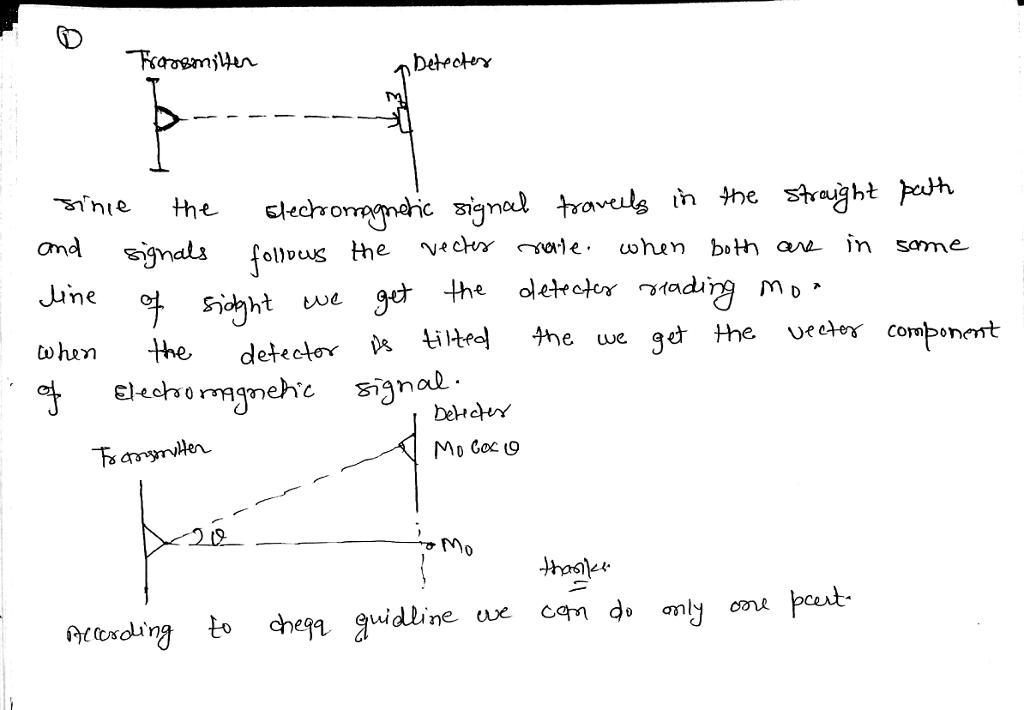 ①
Transmitter
Detector
M
since the Electromagnetic signal travels in the straight path
and signals follows the vector rule. when both are in same
line of sidght we get the detector reading Mo.
when the detector is tilted the we get the vector component
of Electromagnetic signal.
Detector
Transmitter
Mo Cos θ
θ
Mo
thanks
According to chegg guidline we can do only one part.